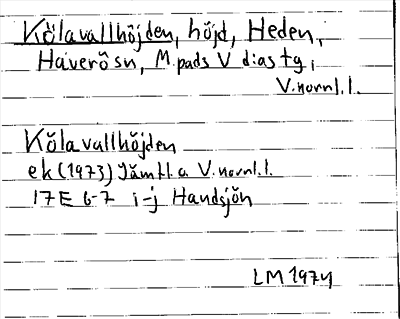 Kölavallhöjden, höjd, Heden,
Haverösn, M.pads V diastg,
V.norrl.l.
Kölavallhöjden
ek (1973) Jämtl.a V.norrl.l.
17E 6-7 i-j Handsjön
LM 1974